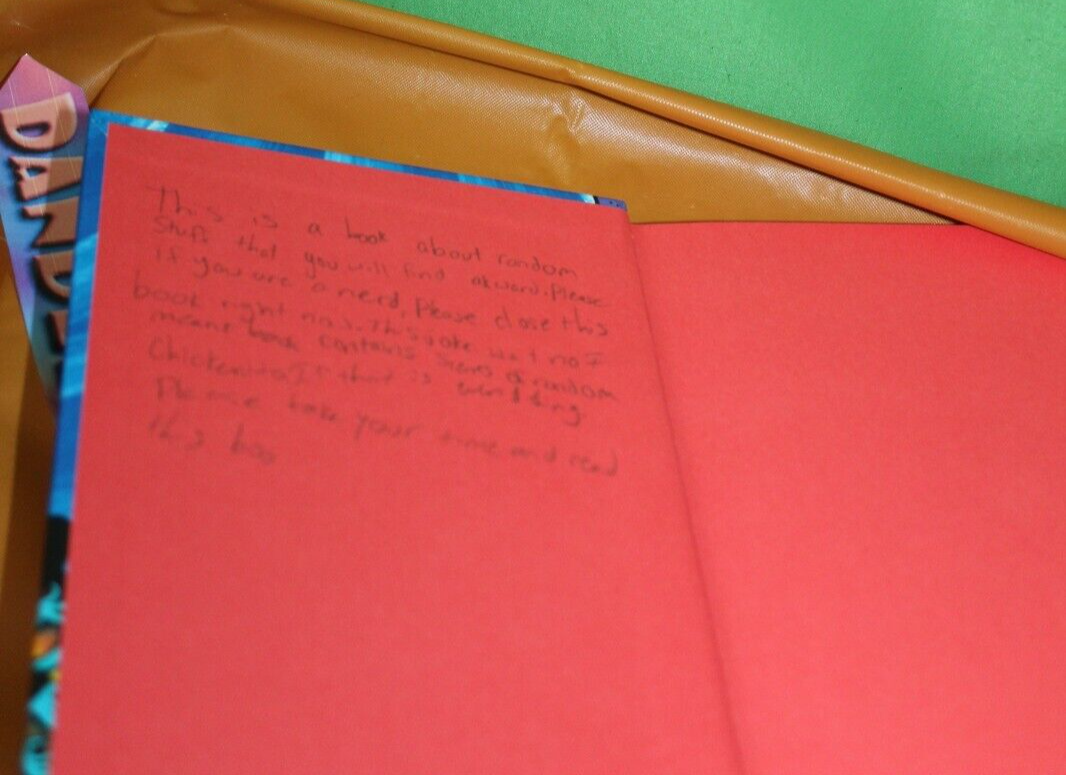 DANDE
This is a book about random
stuff that you will find akward. Please
if you are a nerd, Please close this
book right now. This joke isn't no I
means book contains of random
that is
Please take your time and read
this boo